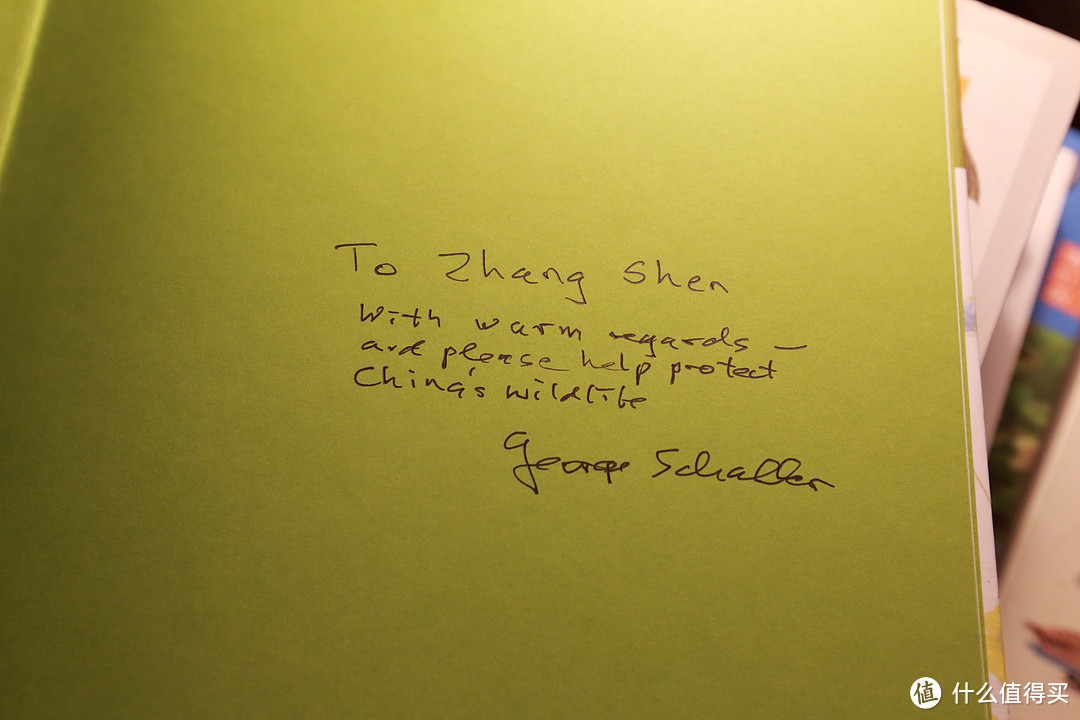 To Zhang Shen
With warm regards —
and please help protect
China's wildlife
George Schaller
值 什么值得买